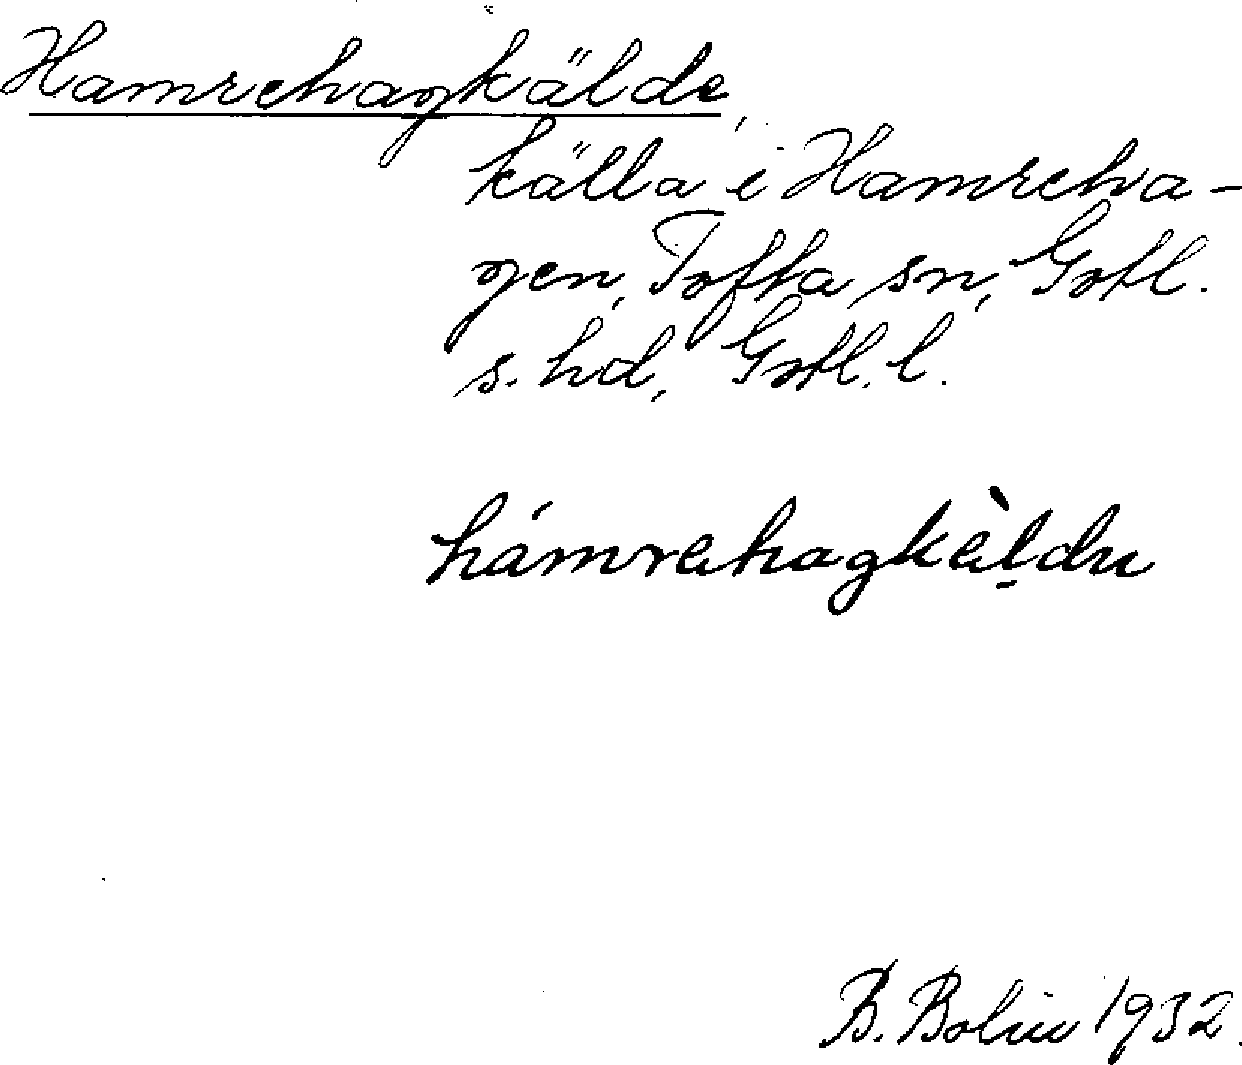 Hamrehagkälde,
källa i Hamreha-
gen, Tofta sn, Gotl.
s. hd, Gotl. l.
hámrehagkèl̠du
B. Bolin 1932.